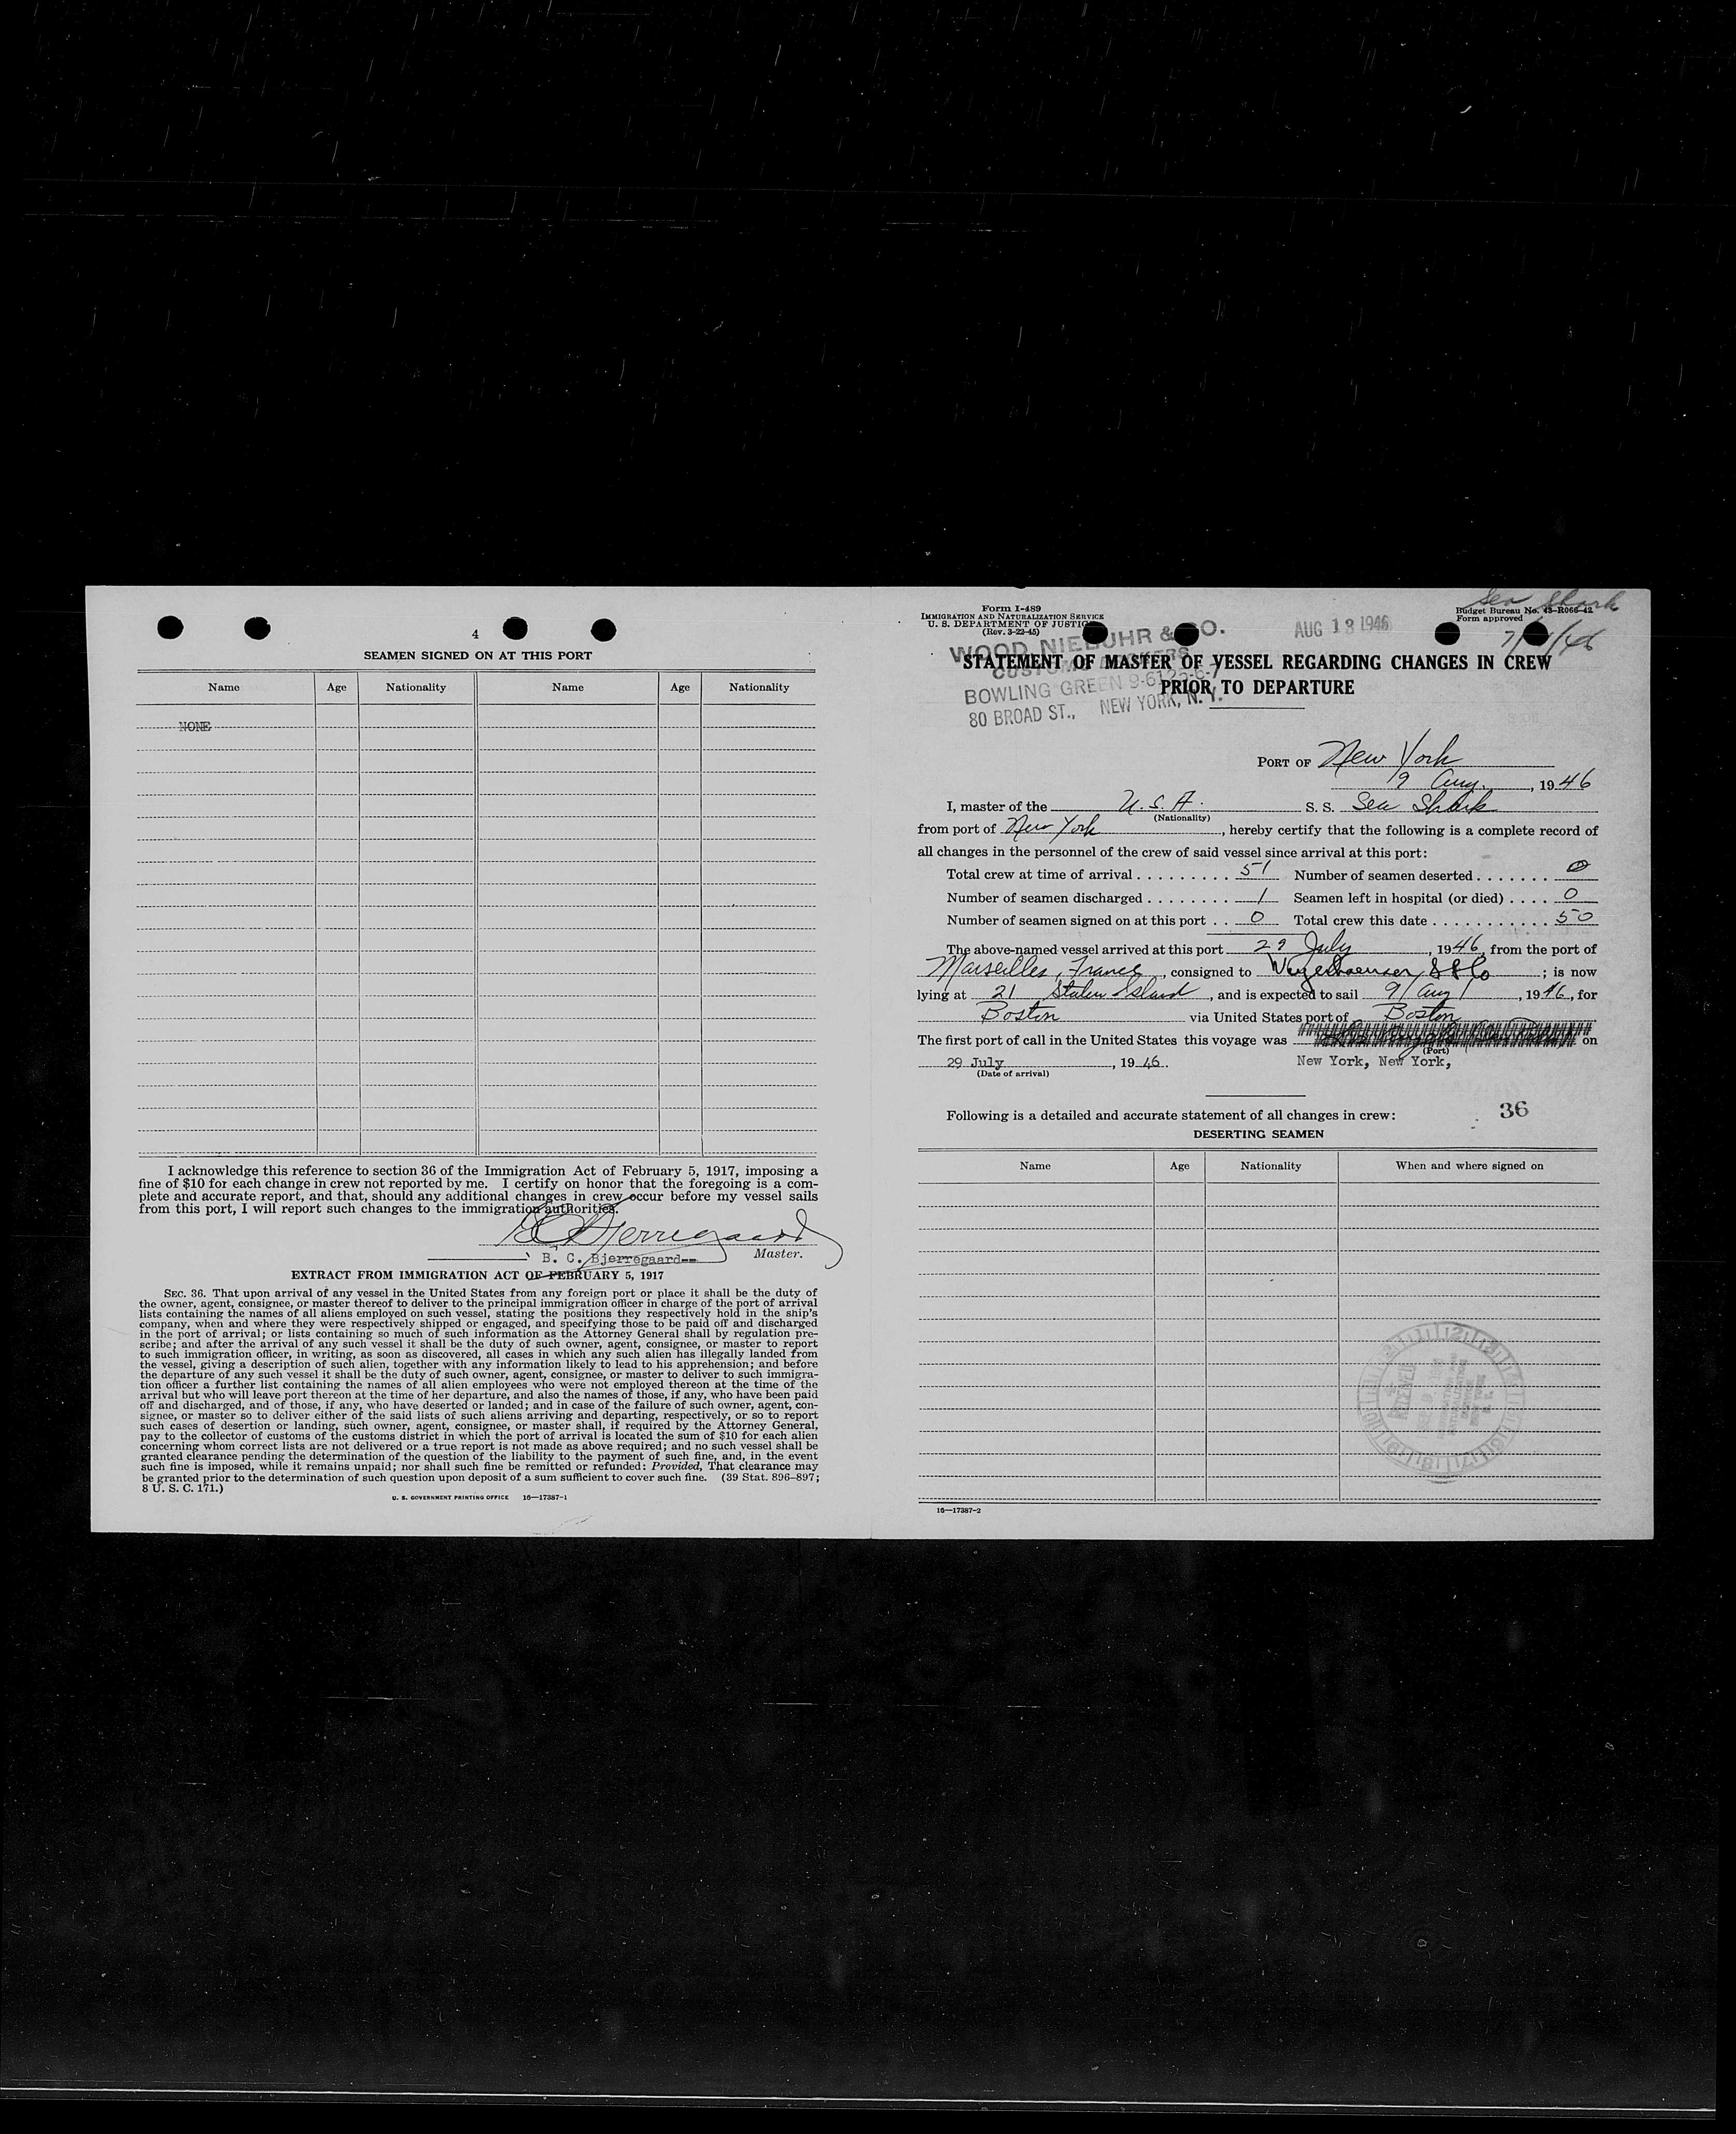 4
SEAMEN SIGNED ON AT THIS PORT
Name Age Nationality Name Age Nationality
NONE
I acknowledge this reference to section 36 of the Immigration Act of February 5, 1917, imposing a
fine of $10 for each change in crew not reported by me. I certify on honor that the foregoing is a com-
plete and accurate report, and that, should any additional changes in crew occur before my vessel sails
from this port, I will report such changes to the immigration authorities.
B C Bjerregaard
B. C. Bjerregaard-- Master.
EXTRACT FROM IMMIGRATION ACT OF FEBRUARY 5, 1917
SEC. 36. That upon arrival of any vessel in the United States from any foreign port or place it shall be the duty of
the owner, agent, consignee, or master thereof to deliver to the principal immigration officer in charge of the port of arrival
lists containing the names of all aliens employed on such vessel, stating the positions they respectively hold in the ship's
company, when and where they were respectively shipped or engaged, and specifying those to be paid off and discharged
in the port of arrival; or lists containing so much of such information as the Attorney General shall by regulation pre-
scribe; and after the arrival of any such vessel it shall be the duty of such owner, agent, consignee, or master to report
to such immigration officer, in writing, as soon as discovered, all cases in which any such alien has illegally landed from
the vessel, giving a description of such alien, together with any information likely to lead to his apprehension; and before
the departure of any such vessel it shall be the duty of such owner, agent, consignee, or master to deliver to such immigra-
tion officer a further list containing the names of all alien employees who were not employed thereon at the time of the
arrival but who will leave port thereon at the time of her departure, and also the names of those, if any, who have been paid
off and discharged, and of those, if any, who have deserted or landed; and in case of the failure of such owner, agent, con-
signee, or master so to deliver either of the said lists of such aliens arriving and departing, respectively, or so to report
such cases of desertion or landing, such owner, agent, consignee, or master shall, if required by the Attorney General,
pay to the collector of customs of the customs district in which the port of arrival is located the sum of $10 for each alien
concerning whom correct lists are not delivered or a true report is not made as above required; and no such vessel shall be
granted clearance pending the determination of the question of the liability to the payment of such fine, and, in the event
such fine is imposed, while it remains unpaid; nor shall such fine be remitted or refunded: Provided, That clearance may
be granted prior to the determination of such question upon deposit of a sum sufficient to cover such fine. (39 Stat. 896–897;
8 U. S. C. 171.)
U. S. GOVERNMENT PRINTING OFFICE 16—17387-1
Form I-489
IMMIGRATION AND NATURALIZATION SERVICE
U. S. DEPARTMENT OF JUSTICE
(Rev. 3-22-45)
Sea Shark
Budget Bureau No. 43-R066-42
Form approved
AUG 13 1946
WOOD NIEBUHR & CO.
CUSTOM BROKERS
BOWLING GREEN 9-6125-6-7
80 BROAD ST., NEW YORK, N. Y.
STATEMENT OF MASTER OF VESSEL REGARDING CHANGES IN CREW
PRIOR TO DEPARTURE
PORT OF New York
9 Aug. , 1946
I, master of the U.S.A. S. S. Sea Shark
(Nationality)
from port of New York , hereby certify that the following is a complete record of
all changes in the personnel of the crew of said vessel since arrival at this port:
Total crew at time of arrival . . . . . . . . . 51 Number of seamen deserted . . . . . . . 0
Number of seamen discharged . . . . . . . . 1 Seamen left in hospital (or died) . . . . 0
Number of seamen signed on at this port . . 0 Total crew this date . . . . . . . . . . . 50
The above-named vessel arrived at this port 29 July , 1946, from the port of
Marseilles, France , consigned to ; is now
lying at 21 Staten Island , and is expected to sail 9/Aug/ , 1946, for
Boston via United States port of Boston
The first port of call in the United States this voyage was on
(Port)
29 July , 19 46. New York, New York,
(Date of arrival)
Following is a detailed and accurate statement of all changes in crew: 36
DESERTING SEAMEN
Name Age Nationality When and where signed on
RECEIVED
16—17387-2